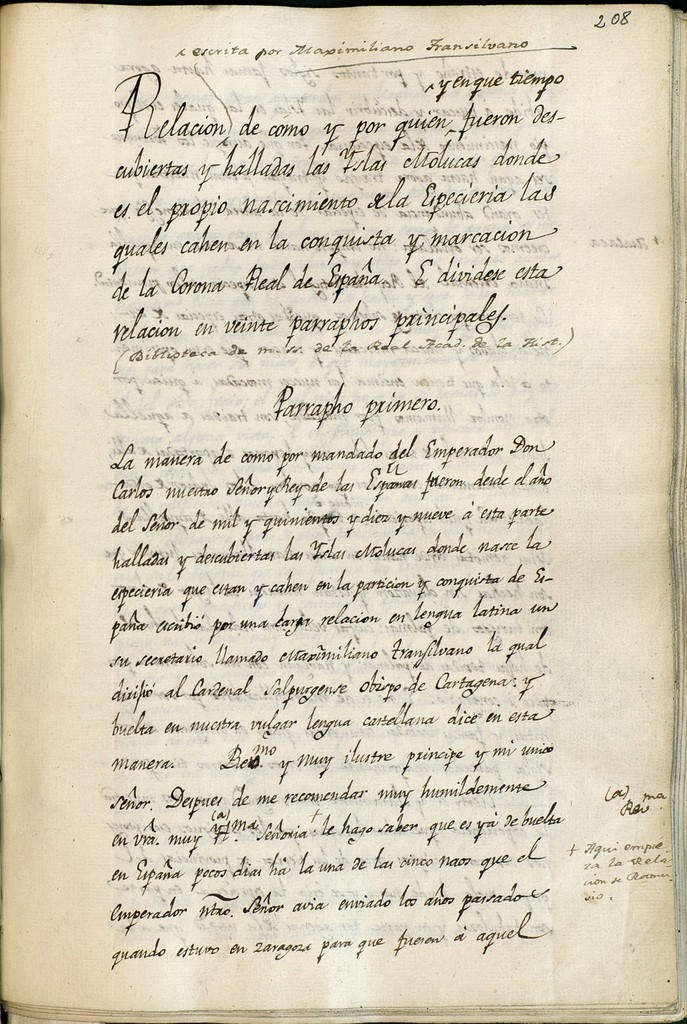 208
escrita por Maximiliano Transilvano
y en que tiempo
Relacion de como y por quien fueron des-
cubiertas y halladas las Yslas Molucas donde
es el propio nascimiento de la Especieria las
quales cahen en la conquista y marcacion
de la Corona Real de España. E dividese esta
relacion en veinte parraphos principales.
(Biblioteca de m. ss. de la Real Acad. de la Hist.)
Parrapho primero.
La manera de como por mandado del Emperador Don
Carlos nuestro Señor y Rey de las Españas fueron desde el año
del Señor de mil y quinientos y diez y nueve á esta parte
halladas y descubiertas las Yslas Molucas donde nasce la
especieria que estan y cahen en la particion y conquista de Es-
paña escribió por una larga relacion en lengua latina un
su secretario llamado Maximiliano transilvano la qual
dirisió al Cardenal Salpurgense Obispo de Cartagena: y
buelta en nuestra vulgar lengua castellana dice en esta
manera. Re.mo y muy ilustre principe y mi unico
Señor. Despues de me recomendar muy humildemente
en vra. muy (a) ma. Señoria + le hago saber que es yá de buelta
en España pocos dias há la una de las cinco naos que el
Emperador ntro. Señor avia enviado los años passados
quando estuvo en zaragoza para que fuesen á aquel
(a) ma
Rev.
+ Aqui empie-
za la Rela-
cion de Ramu-
sio.